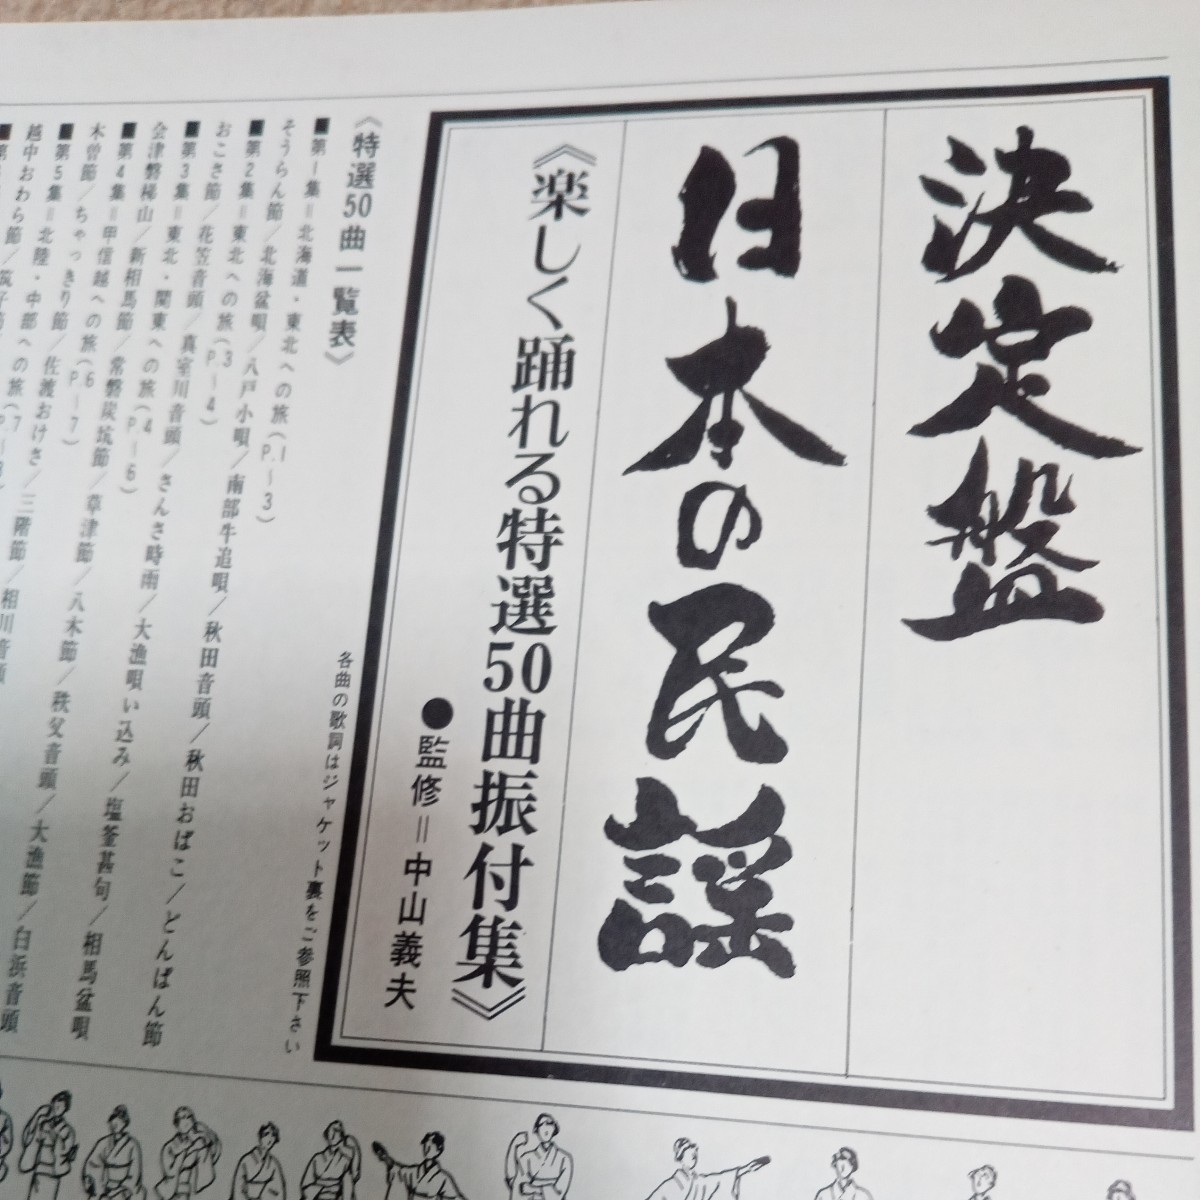 決定盤
日本の民謡
《楽しく踊れる特選50曲振付集》
●監修＝中山義夫
《特選50曲一覧表》
各曲の歌詞はジャケット裏をご参照下さい
■第1集＝北海道・東北への旅(P.1〜3)
そうらん節／北海盆唄／八戸小唄／南部牛追唄／秋田音頭／秋田おばこ／どんぱん節
■第2集＝東北への旅(P.3〜4)
おこさ節／花笠音頭／真室川音頭／さんさ時雨／大漁唄い込み／塩釜甚句／相馬盆唄
■第3集＝東北・関東への旅(P.4〜6)
会津磐梯山／新相馬節／常磐炭坑節／草津節／八木節／秩父音頭／大漁節／白浜音頭
■第4集＝甲信越への旅(P.6〜7)
木曽節／ちゃっきり節／佐渡おけさ／三階節／相川音頭
■第5集＝北陸・中部への旅(P.7〜8)
越中おわら節／